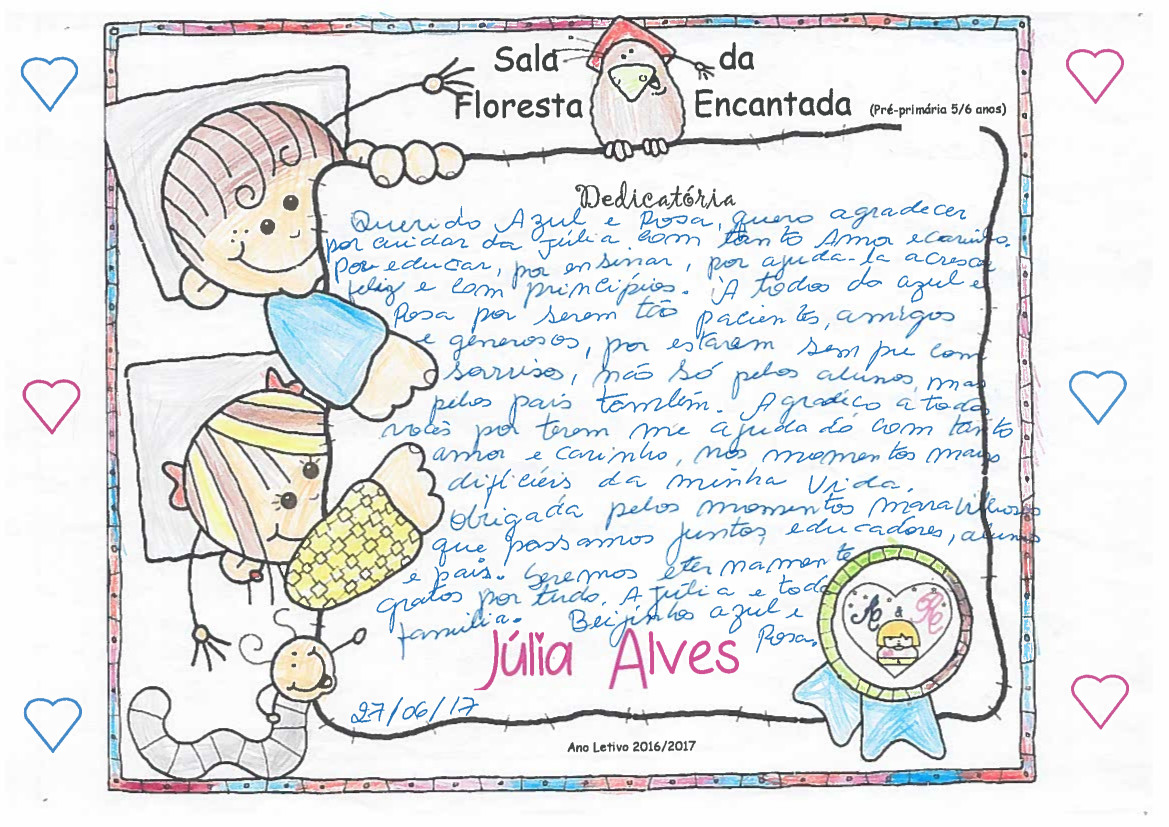 Sala da
Floresta Encantada (Pré-primária 5/6 anos)
Dedicatória
Querido Azul e Rosa, quero agradecer
por cuidar da Júlia com tanto Amor e carinho.
Por educar, por ensinar, por ajuda-la a crescer
feliz e com princípios. À todos do azul e
Rosa por serem tão pacientes, amigos
e generosos, por estarem sempre com
sorrisos, não só pelos alunos, mas
pelos pais também. Agradeço a todos
vocês por terem me ajudado com tanto
amor e carinho, nos momentos mais
difíciéis da minha vida.
Obrigada pelos momentos maravilhosos
que passamos juntos, educadores, alunos
e pais. Seremos eternamente
gratos por tudo. A Júlia e toda
família. Beijinhos azul e
Rosa.
Júlia Alves
A &
27/06/17
Ano Letivo 2016/2017